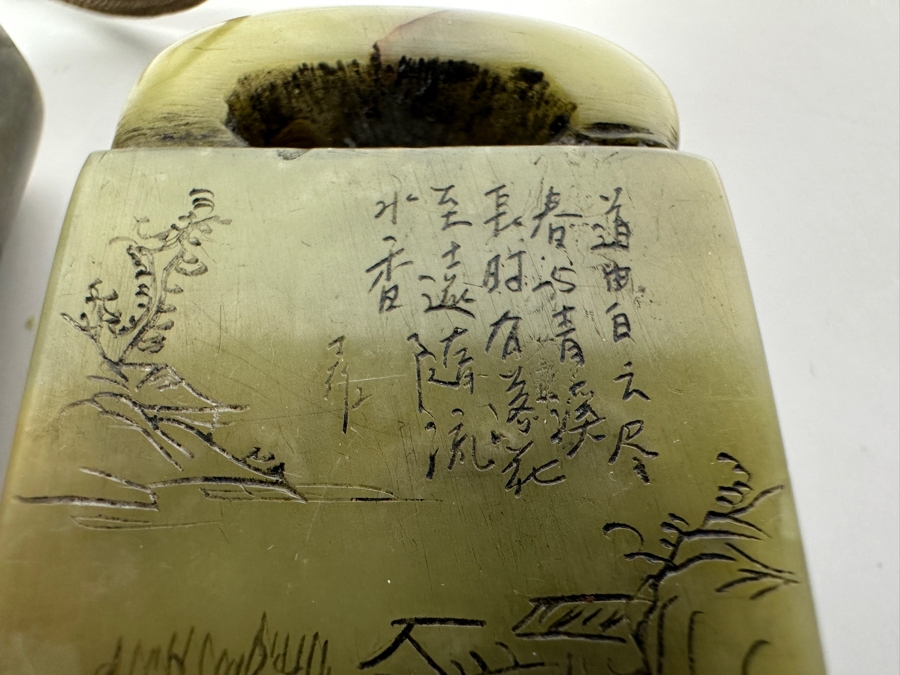 道由白云尽
春与青溪
長时有落花
至遠随流
水香